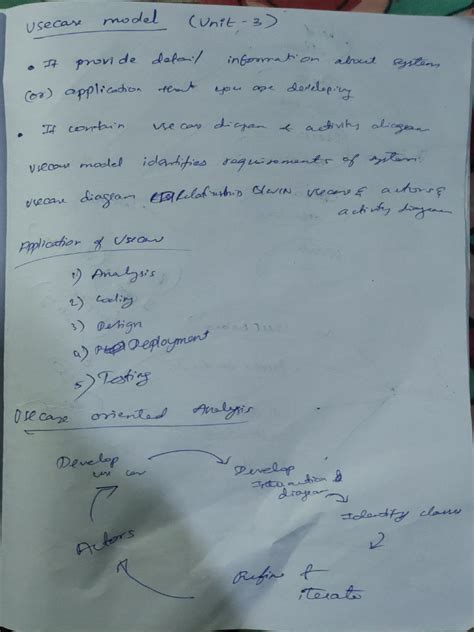 Usecase model (Unit-3)
• It provide detail information about system
(or) application that you are developing
• It contain use case diagram & activity diagram
usecase model identifies requirements of system
usecase diagram Relationship b/w usecase & actors &
activity diagram
Application of Usecase
1) Analysis
2) Coding
3) Design
4) Deployment
5) Testing
Usecase oriented Analysis
Develop
use case
Develop
Interaction
diagram
Identify classes
Refine &
iterate
Actors